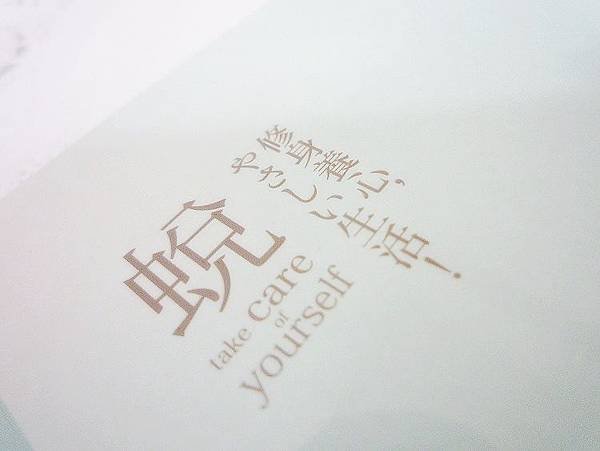 蛻
修身養心,
やさしい生活!
take care
of
yourself